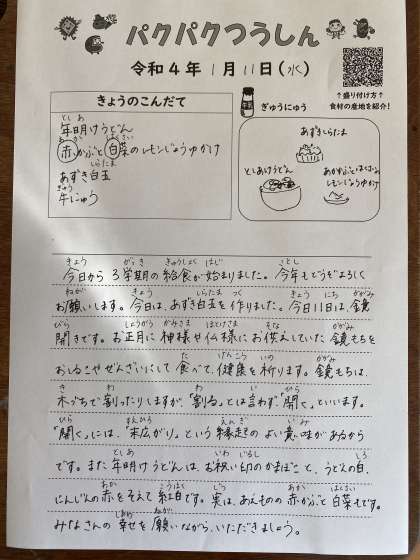 パクパクつうしん
令和4年 1月 11日(水)
きょうのこんだて
年明けうどん
赤かぶと白菜のレモンじょうゆかけ
あずき白玉
牛にゅう
ぎゅうにゅう
↑盛り付け方↑
食材の産地を紹介!
あずきしらたま
としあけうどん
あかかぶとはくさいの
レモンじょうゆかけ
今日から3学期の給食が始まりました。今年もどうぞよろしく
お願いします。今日は、あずき白玉を作りました。今日11日は、鏡
開きです。お正月に神様や仏様にお供えしていた鏡もちを
おしるこやぜんざいにして食べて、健康を祈ります。鏡もちは、
木づちで割ったりしますが、「割る」とは言わず「開く」といいます。
「開く」には、「末広がり」という縁起のよい意味があるから
です。また年明けうどんは、お祝い印のかまぼこと、うどんの白、
にんじんの赤をそえて紅白です。実は、あえものの赤かぶと白菜もです。
みなさんの幸せを願いながら、いただきましょう。